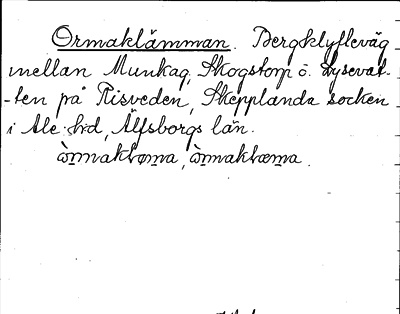 Ormaklämman. Bergsklyfteväg
mellan Munkag, Skogstorp o. Lysevat-
-ten på Risveden, Skepplanda socken
i Ale hd, Älfsborgs län.